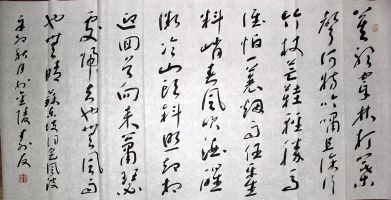 莫聽穿林打葉
聲何妨吟嘯且徐行
竹杖芒鞋輕勝馬
誰怕一蓑烟雨任平生
料峭春風吹酒醒
微冷山頭斜照却相
迎回首向來蕭瑟
處歸去也無風雨
也無晴 蘇東坡詞定風波
秋月於金陵